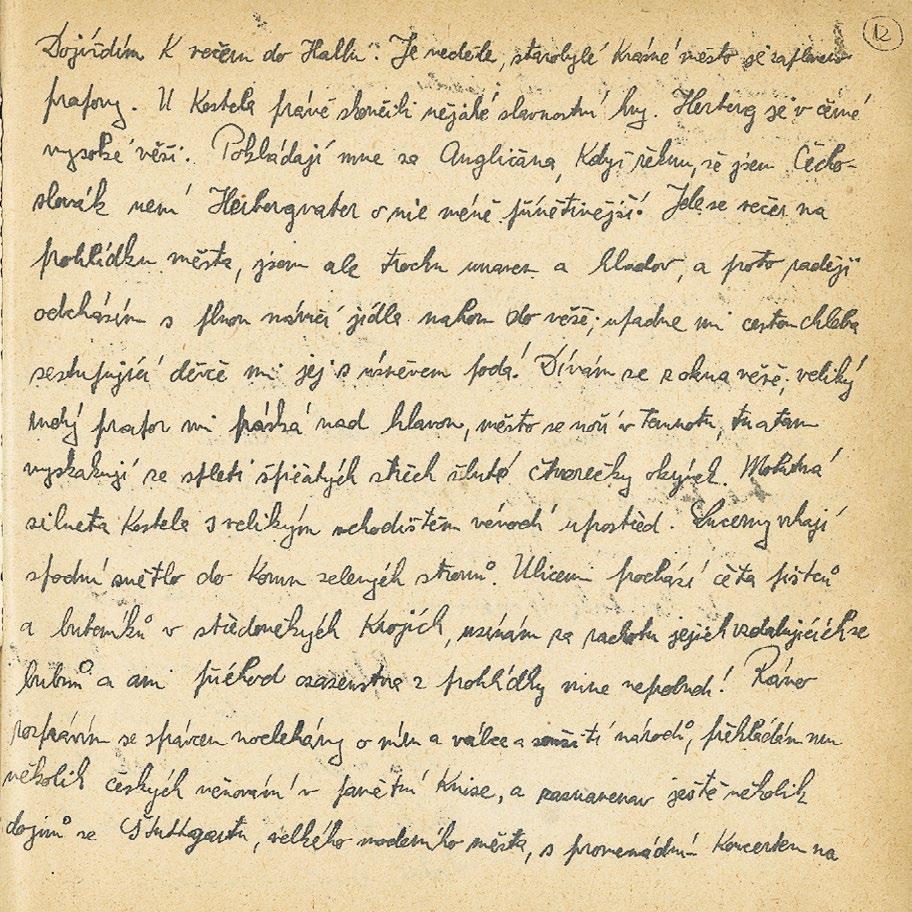 12
Dojíždím k večeru do Hallu. Je neděle, starobylé krásné město je zaplaveno
prapory. U kostela právě skončili nějaké slavnostní hry. Herberg je v černé
vysoké věži. Pokládají mne za Angličana, když řeknu, že jsem Čecho-
slovák není Herbergvater o nic méně přívětivější! Jde se večer na
prohlídku města, jsem ale trochu unaven a hladov, a proto raději
odcházím s plnou náručí jídla nahoru do věže; upadne mi cestou chleba
sestupující děvče mi jej s úsměvem podá! Dívám se z okna věže, veliký
rudý prapor mi práská nad hlavou, město se noří v temnotu, tu a tam
vyskakují ze spleti špičatých střech žluté čtverečky okének. Mohutná
silueta kostela s velikým schodištěm vévodí uprostřed. Lucerny vrhají
spodní světlo do korun zelených stromů. Ulicemi prochází četa pištců
a bubeníků v středověkých krojích, usínám za rachotu jejich vzdalujících se
bubnů a ani příchod osazenstva z prohlídky mne neprobudí! Ráno
rozprávím se správcem noclehárny o míru a válce a soužití národů, překládám mu
několik českých věnování v pamětní knize, a zaznamenav ještě několik
dojmů ze Stuttgartu, velkého moderního města, s promenádním koncertem na